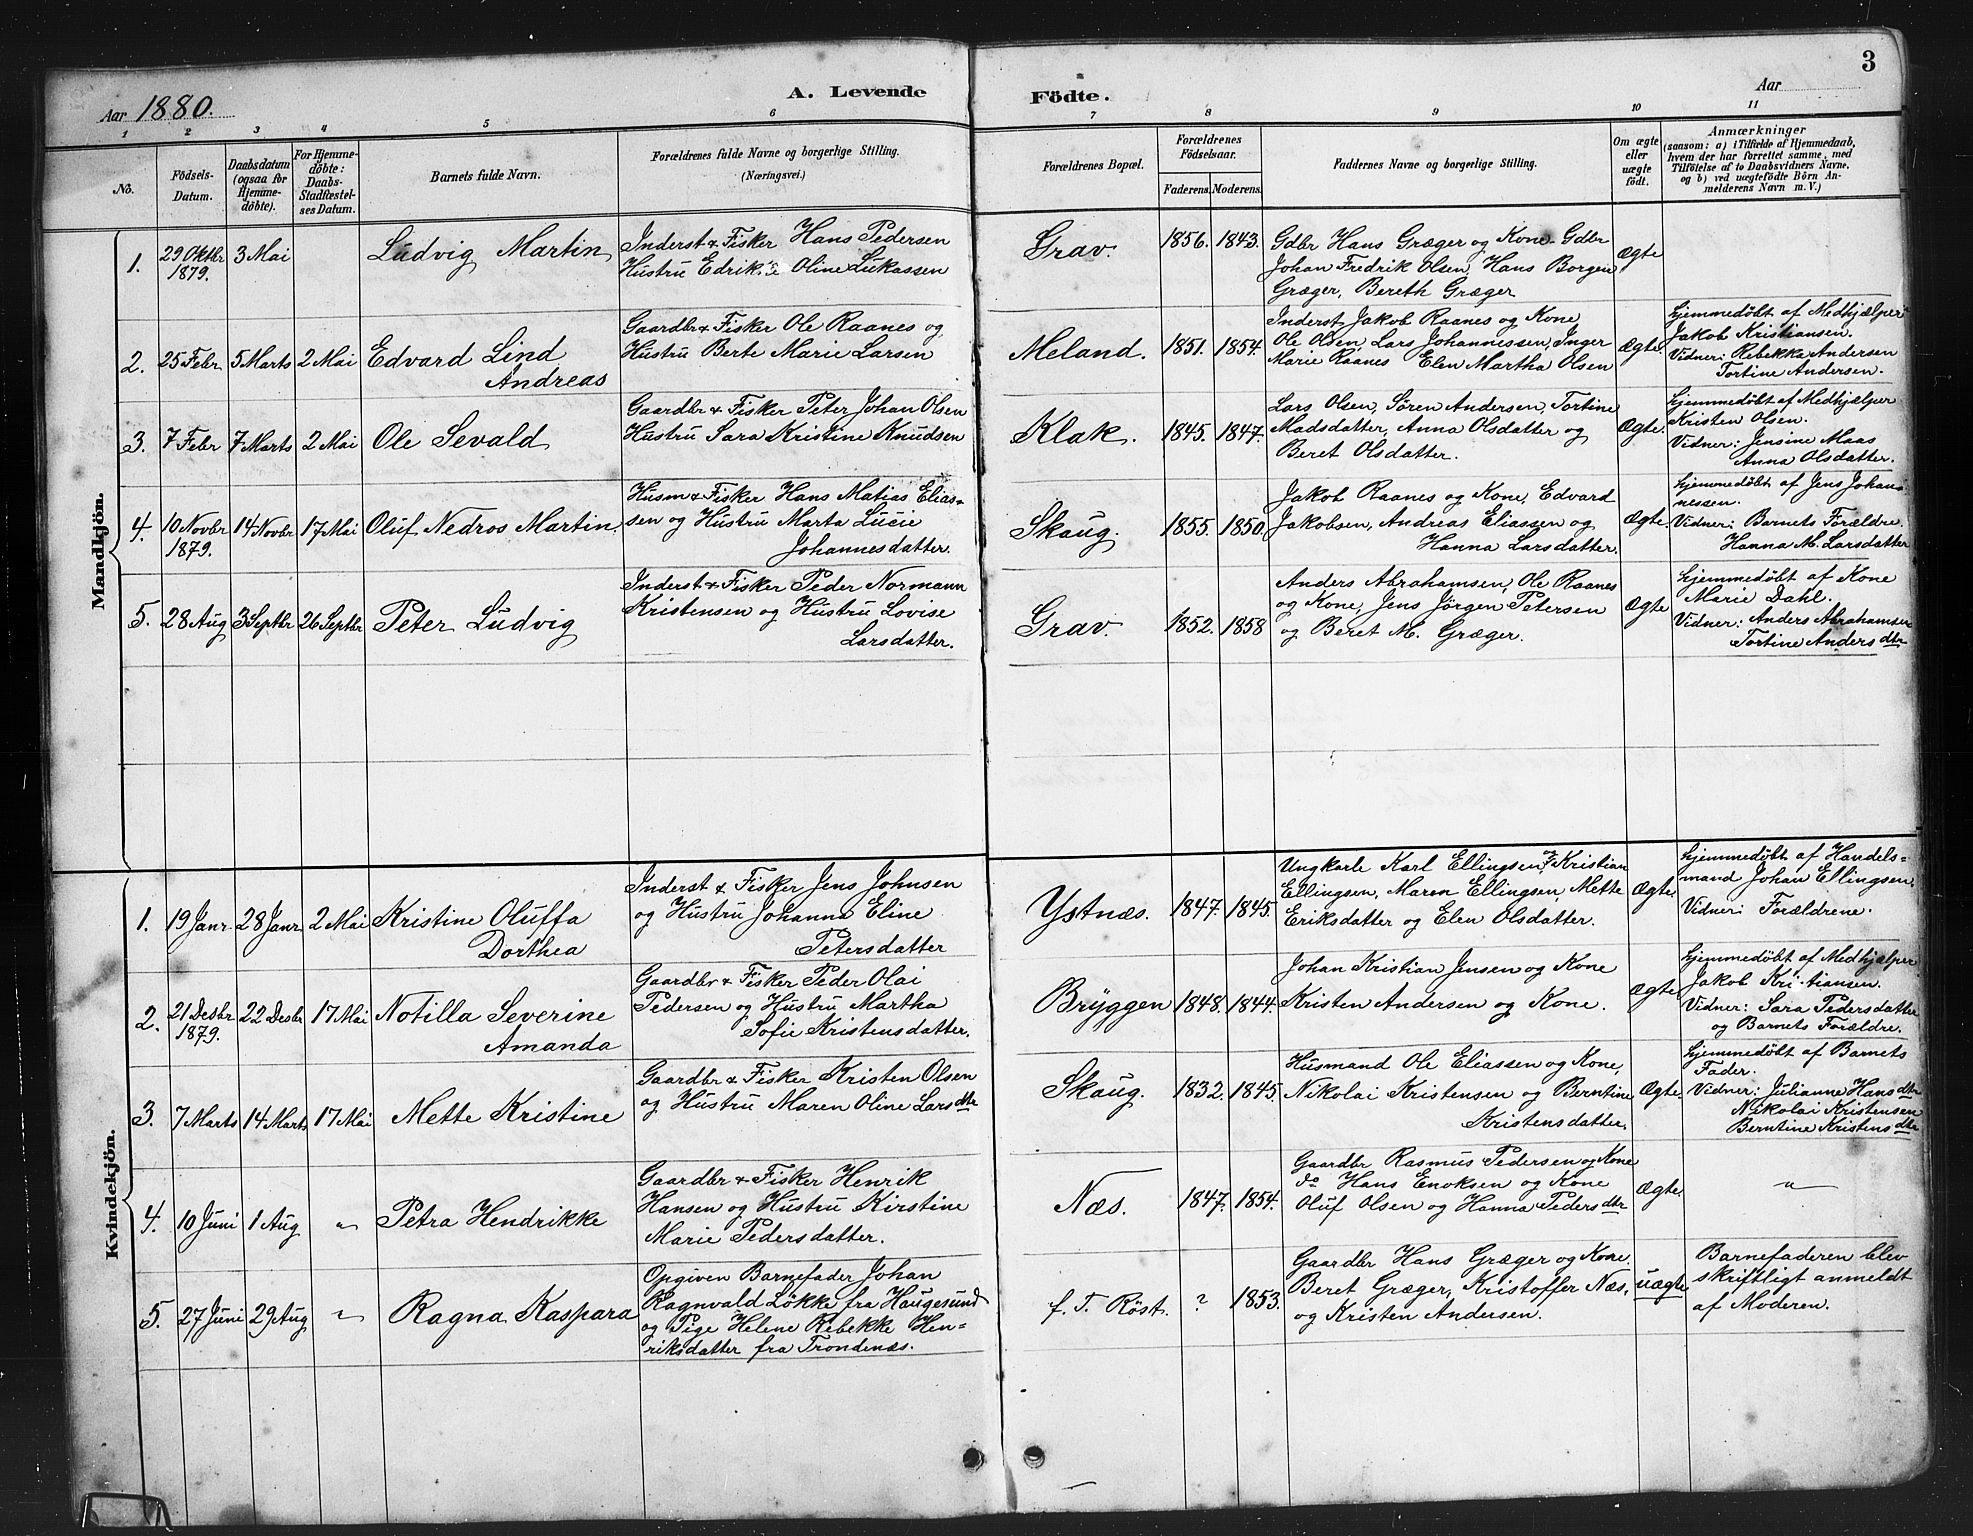 3
Aar 1880.
A. Levende Födte.
Aar
1 2 3 4 5 6 7 8 9 10 11
No.
Födsels-Datum.
Daabsdatum (ogsaa for Hjemmedöbte).
For Hjemmedöbte: Daabs-Stadfæstelses Datum.
Barnets fulde Navn.
Forældrenes fulde Navne og borgerlige Stilling.
(Næringsvei.)
Forældrenes Bopæl.
Forældrenes Födselsaar.
Faderens. Moderens.
Faddernes Navne og borgerlige Stilling.
Om ægte eller uægte födt.
Anmærkninger
(saasom: a) i Tilfælde af Hjemmedaab,
hvem der har forrettet samme, med
Tilföielse af to Daabsvidners Navne,
og b) ved uægtefödte Börn An-
melderens Navn m. V.)
Mandkjön.
1. 29 Oktbr 1879. 3 Mai
Ludvig Martin
Inderst & Fisker Hans Pedersen
Hustru Edrikke Oline Lukassen
Grav. 1856. 1843.
Gdbr Hans Græger og Kone. Gdbr
Johan Fredrik Olsen, Hans Borgen
Græger, Bereth Græger
Ægte
2. 25 Febr 5 Marts 2 Mai
Edvard Lind
Andreas
Gaardbr & Fisker Ole Raanes og
Hustru Berte Marie Larsen
Meland. 1851. 1854.
Inderst Jakob Raanes og Kone
Ole Olsen, Lars Johannessen, Inger
Marie Raanes Elen Martha Olsen
Ægte.
Hjemmedöbt af Medhjælper
Jakob Kristiansen.
Vidner: Rebekka Andersen
Tortine Andersen.
3. 7 Febr 7 Marts 2 Mai
Ole Sevald
Gaardbr & Fisker Peter Johan Olsen
Hustru Sara Kristine Knudsen
Klak. 1845. 1847.
Lars Olsen, Sören Andersen, Tortine
Madsdatter, Anna Olsdatter og
Beret Olsdatter.
Ægte.
Hjemmedöbt af Medhjælper
Kristen Olsen.
Vidner: Jensine Maas
Anna Olsdatter.
4. 10 Novbr 1879. 14 Novbr 17 Mai
Oluf Nedros Martin
Husm & Fisker Hans Matias Elias-
sen og Hustru Marta Lucie
Johannesdatter.
Skaug. 1855. 1850.
Jakob Raanes og Kone, Edvard
Jakobsen, Andreas Eliassen og
Hanna Larsdatter.
Ægte.
Hjemmedöbt af Jens Johan-
nessen.
Vidner: Barnets Forældre.
Hanna M. Larsdatter
5. 28 Aug 3 Septbr 26 Septbr
Peter Ludvig
Inderst & Fisker Peder Normann
Kristensen og Hustru Lovise
Larsdatter.
Grav. 1852. 1858
Anders Abrahamsen, Ole Raanes
og Kone, Jens Jörgen Petersen
og Beret M. Græger.
Ægte
Hjemmedöbt af Kone
Marie Dahl.
Vidner: Anders Abrahamsen
Tortine Andersdtr
Kvindekjön.
1. 19 Janr. 28 Janr 2 Mai
Kristine Oluffa
Dorthea
Inderst & Fisker Jens Johnsen
og Hustru Johanna Eline
Petersdatter
Ystnæs. 1847. 1845.
Ungkarle Karl Ellingsen og Kristian
Ellingsen, Maren Ellingsen, Mette
Eriksdatter og Elen Olsdatter.
Ægte.
Hjemmedöbt af Handels-
mand Johan Ellingsen.
Vidner: Forældrene.
2. 21 Desbr 1879. 22 Desbr 17 Mai
Notilla Severine
Amanda
Gaardbr & Fisker Peder Olai
Pedersen og Hustru Martha
Sofie Kristensdatter.
Bryggen 1848. 1844.
Johan Kristian Jensen og Kone
Kristen Andersen og Kone.
Ægte
Hjemmedöbt af Medhjælper
Jakob Kristiansen.
Vidner: Sara Pedersdatter
og Barnets Forældre.
3. 7 Marts 14 Marts 17 Mai
Mette Kristine
Gaardbr & Fisker Kristen Olsen
og Hustru Maren Oline Larsdtr
Skaug. 1832. 1845.
Husmand Ole Eliassen og Kone,
Nikolai Kristensen og Berntine
Kristensdatter.
Ægte.
Hjemmedöbt af Barnets
Fader.
Vidner: Julianne Hansdtr
Nikolai Kristensen
Berntine Kristensdtr
4. 10 Juni 1 Aug "
Petra Hendrikke
Gaardbr & Fisker Henrik
Hansen og Hustru Kirstine
Marie Pedersdatter.
Næs. 1847. 1854.
Gaardbr Rasmus Pedersen og Kone
do Hans Enoksen og Kone
Oluf Olsen og Hanna Pedersdtr
Ægte.
"
5. 27 Juni 29 Aug "
Ragna Kaspara
Opgiven Barnefader Johan
Ragnvald Løkke fra Haugesund
og Pige Helene Rebekke Hen-
riksdatter fra Trondenæs.
f. T. Röst. ? 1853.
Gaardbr Hans Græger og Kone.
Beret Græger, Kristoffer Næs,
og Kristen Andersen.
uægte
Barnefaderen blev
skriftligt anmeldt
af Moderen.